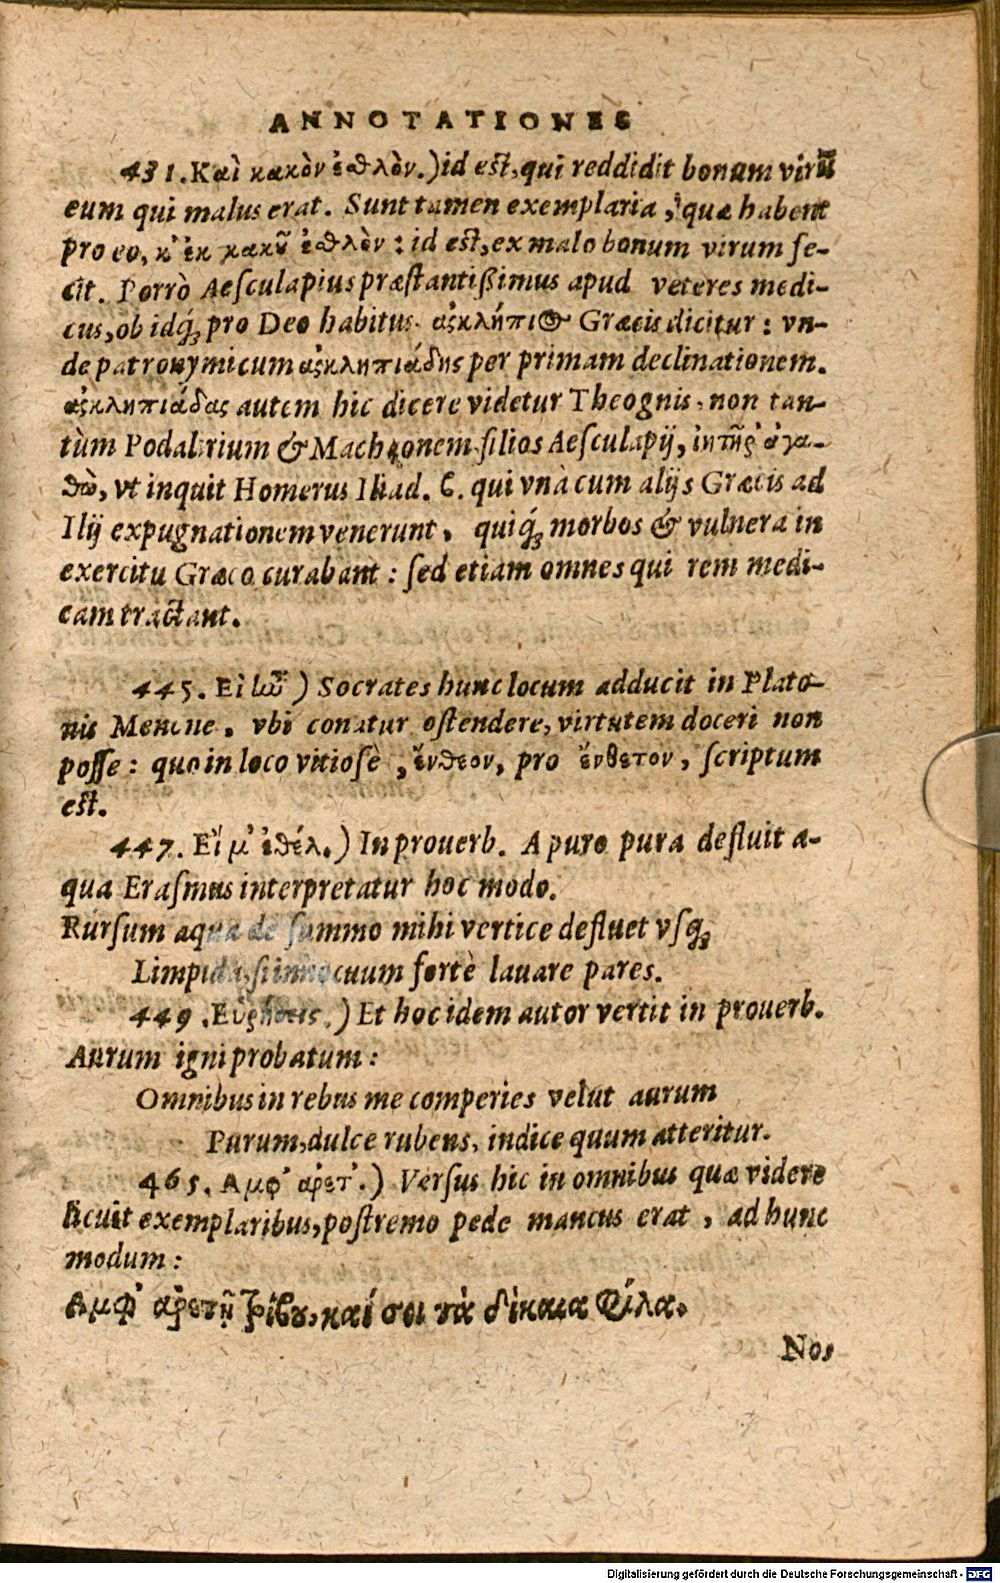 ANNOTATIONES
431. Καὶ κακὸν ἐσθλὸν.) id eſt, qui reddidit bonum virū
eum qui malus erat. Sunt tamen exemplaria, quæ habent
pro eo, κ' ἐκ κακοῦ ἐσθλὸν : id eſt, ex malo bonum virum fe-
cit. Porrò Aeſculapius præſtantißimus apud veteres medi-
cus, ob idq́; pro Deo habitus. ἀσκλήπιος Græcis dicitur : vn-
de patronymicum ἀσκληπιάδης per primam declinationem.
ἀσκληπιάδας autem hic dicere videtur Theognis, non tan-
tùm Podalirium & Machaonem filios Aeſculapij, ἰητῆρ' ἀγα-
θὼ, vt inquit Homerus Iliad. ς. qui vnà cum alijs Græcis ad
Ilij expugnationem venerunt, quiq́; morbos & vulnera in
exercitu Græco curabant : ſed etiam omnes qui rem medi-
cam tractant.
445. Εἰ ) Socrates hunc locum adducit in Plato-
nis Menone, vbi conatur oſtendere, virtutem doceri non
poſſe : quo in loco vitioſè, ἔνθεον, pro ἔνθετον, ſcriptum
eſt.
447. Εἴ μ' ἐθέλ.) In prouerb. A puro pura defluit a-
qua Eraſmus interpretatur hoc modo.
Rurſum aqua de ſummo mihi vertice defluet vſq́;
Limpida, ſi innocuum fortè lauare pares.
449. Εὑρήσεις.) Et hoc idem autor vertit in prouerb.
Aurum igni probatum :
Omnibus in rebus me comperies velut aurum
Purum, dulce rubens, indice quum atteritur.
465. Αμφ' ἀρετ'.) Verſus hic in omnibus quæ videre
licuit exemplaribus, poſtremo pede mancus erat, ad hunc
modum :
Αμφ' ἀρετῇ τρίβου, καί σοι τὰ δίκαια φίλα.
Nos
Digitalisierung gefördert durch die Deutsche Forschungsgemeinschaft - DFG